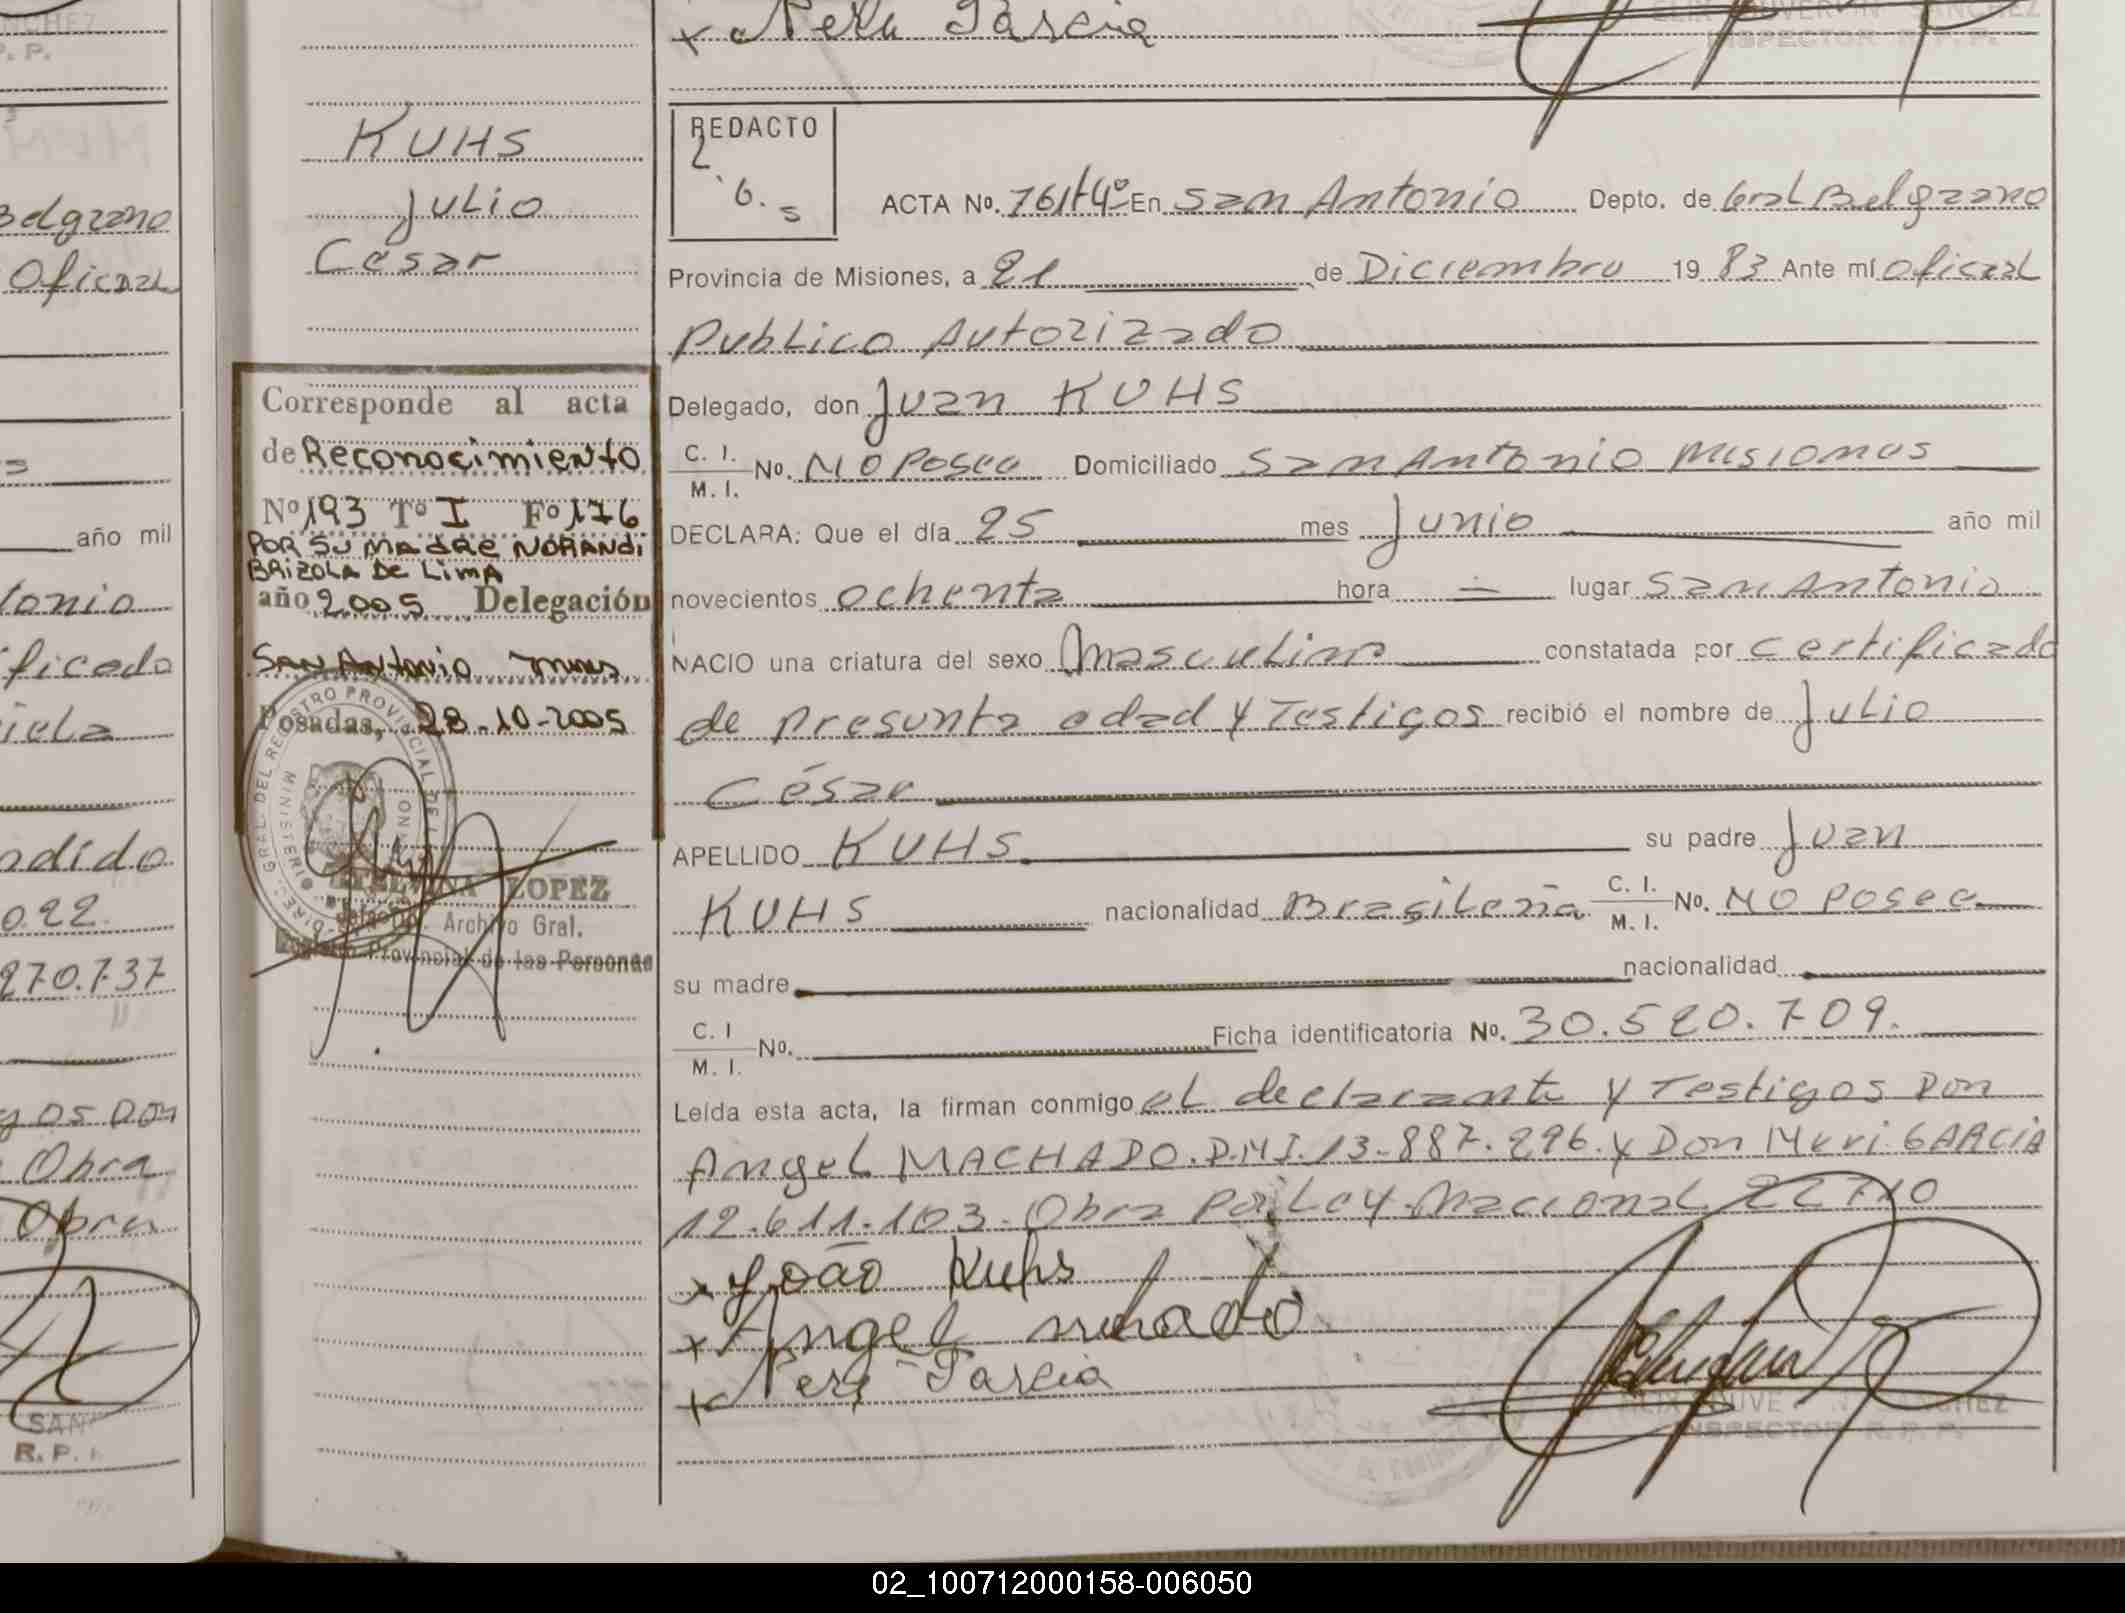 P. P.
Belgrano
Oficial
año mil
tonio
ificado
iela
ndido
022
270.737
gos Don
Obra
Obra
SAN
R. P.
KUHS
Julio
César
Corresponde al acta
de Reconocimiento
Nº 193 Tº I Fº 176
POR SU MADRE NORANDI
BRIZOLA DE LIMA
año 2005 Delegación
SAN Antonio Mnes
Posadas, 28-10-2005
DIREC. GRAL. DEL REGISTRO PROVINCIAL DE L
MINISTE
LOPEZ
Archivo Gral.
Registro Provincial de las Personas
x Neri Garcia
INSPECTOR R. P. P.
REDACTO
6. s
ACTA Nº. 761 tº 4º En San Antonio Depto. de Gral Belgrano
Provincia de Misiones, a 21 de Diciembre 1983 Ante mí Oficial
Publico Autorizado
Delegado, don Juan KUHS
C. I. / M. I. No. No Posee Domiciliado San Antonio Misiones
DECLARA: Que el día 25 mes Junio año mil
novecientos ochenta hora — lugar San Antonio
NACIO una criatura del sexo Masculino constatada por certificado
de presunta edad y Testigos recibió el nombre de Julio
César
APELLIDO KUHS su padre Juan
KUHS nacionalidad Brasileña C. I. / M. I. No. No Posee
su madre nacionalidad
C. I / M. I. No. Ficha identificatoria No. 30.520.709.
Leída esta acta, la firman conmigo el declarante y Testigos Don
Angel MACHADO. D.N.I. 13.887.296. y Don Neri GARCIA
12.611.103. Obra por Ley Nacional 22710
x João Kuhs
x Angel Machado
x Neri Garcia
INSPECTOR R. P. P.
02_100712000158-006050